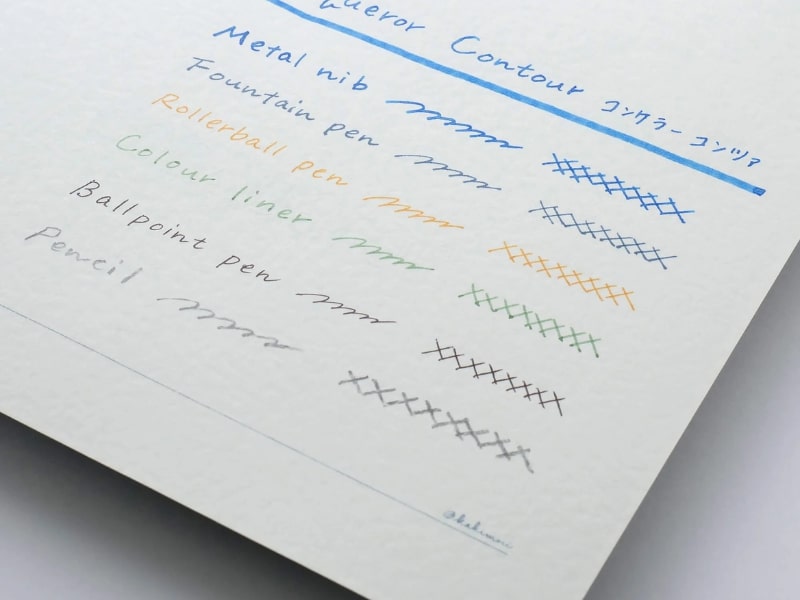 queror Contour コンケラーコンツァ
Metal nib
Fountain pen
Rollerball pen
Colour liner
Ballpoint pen
Pencil
@kakimori